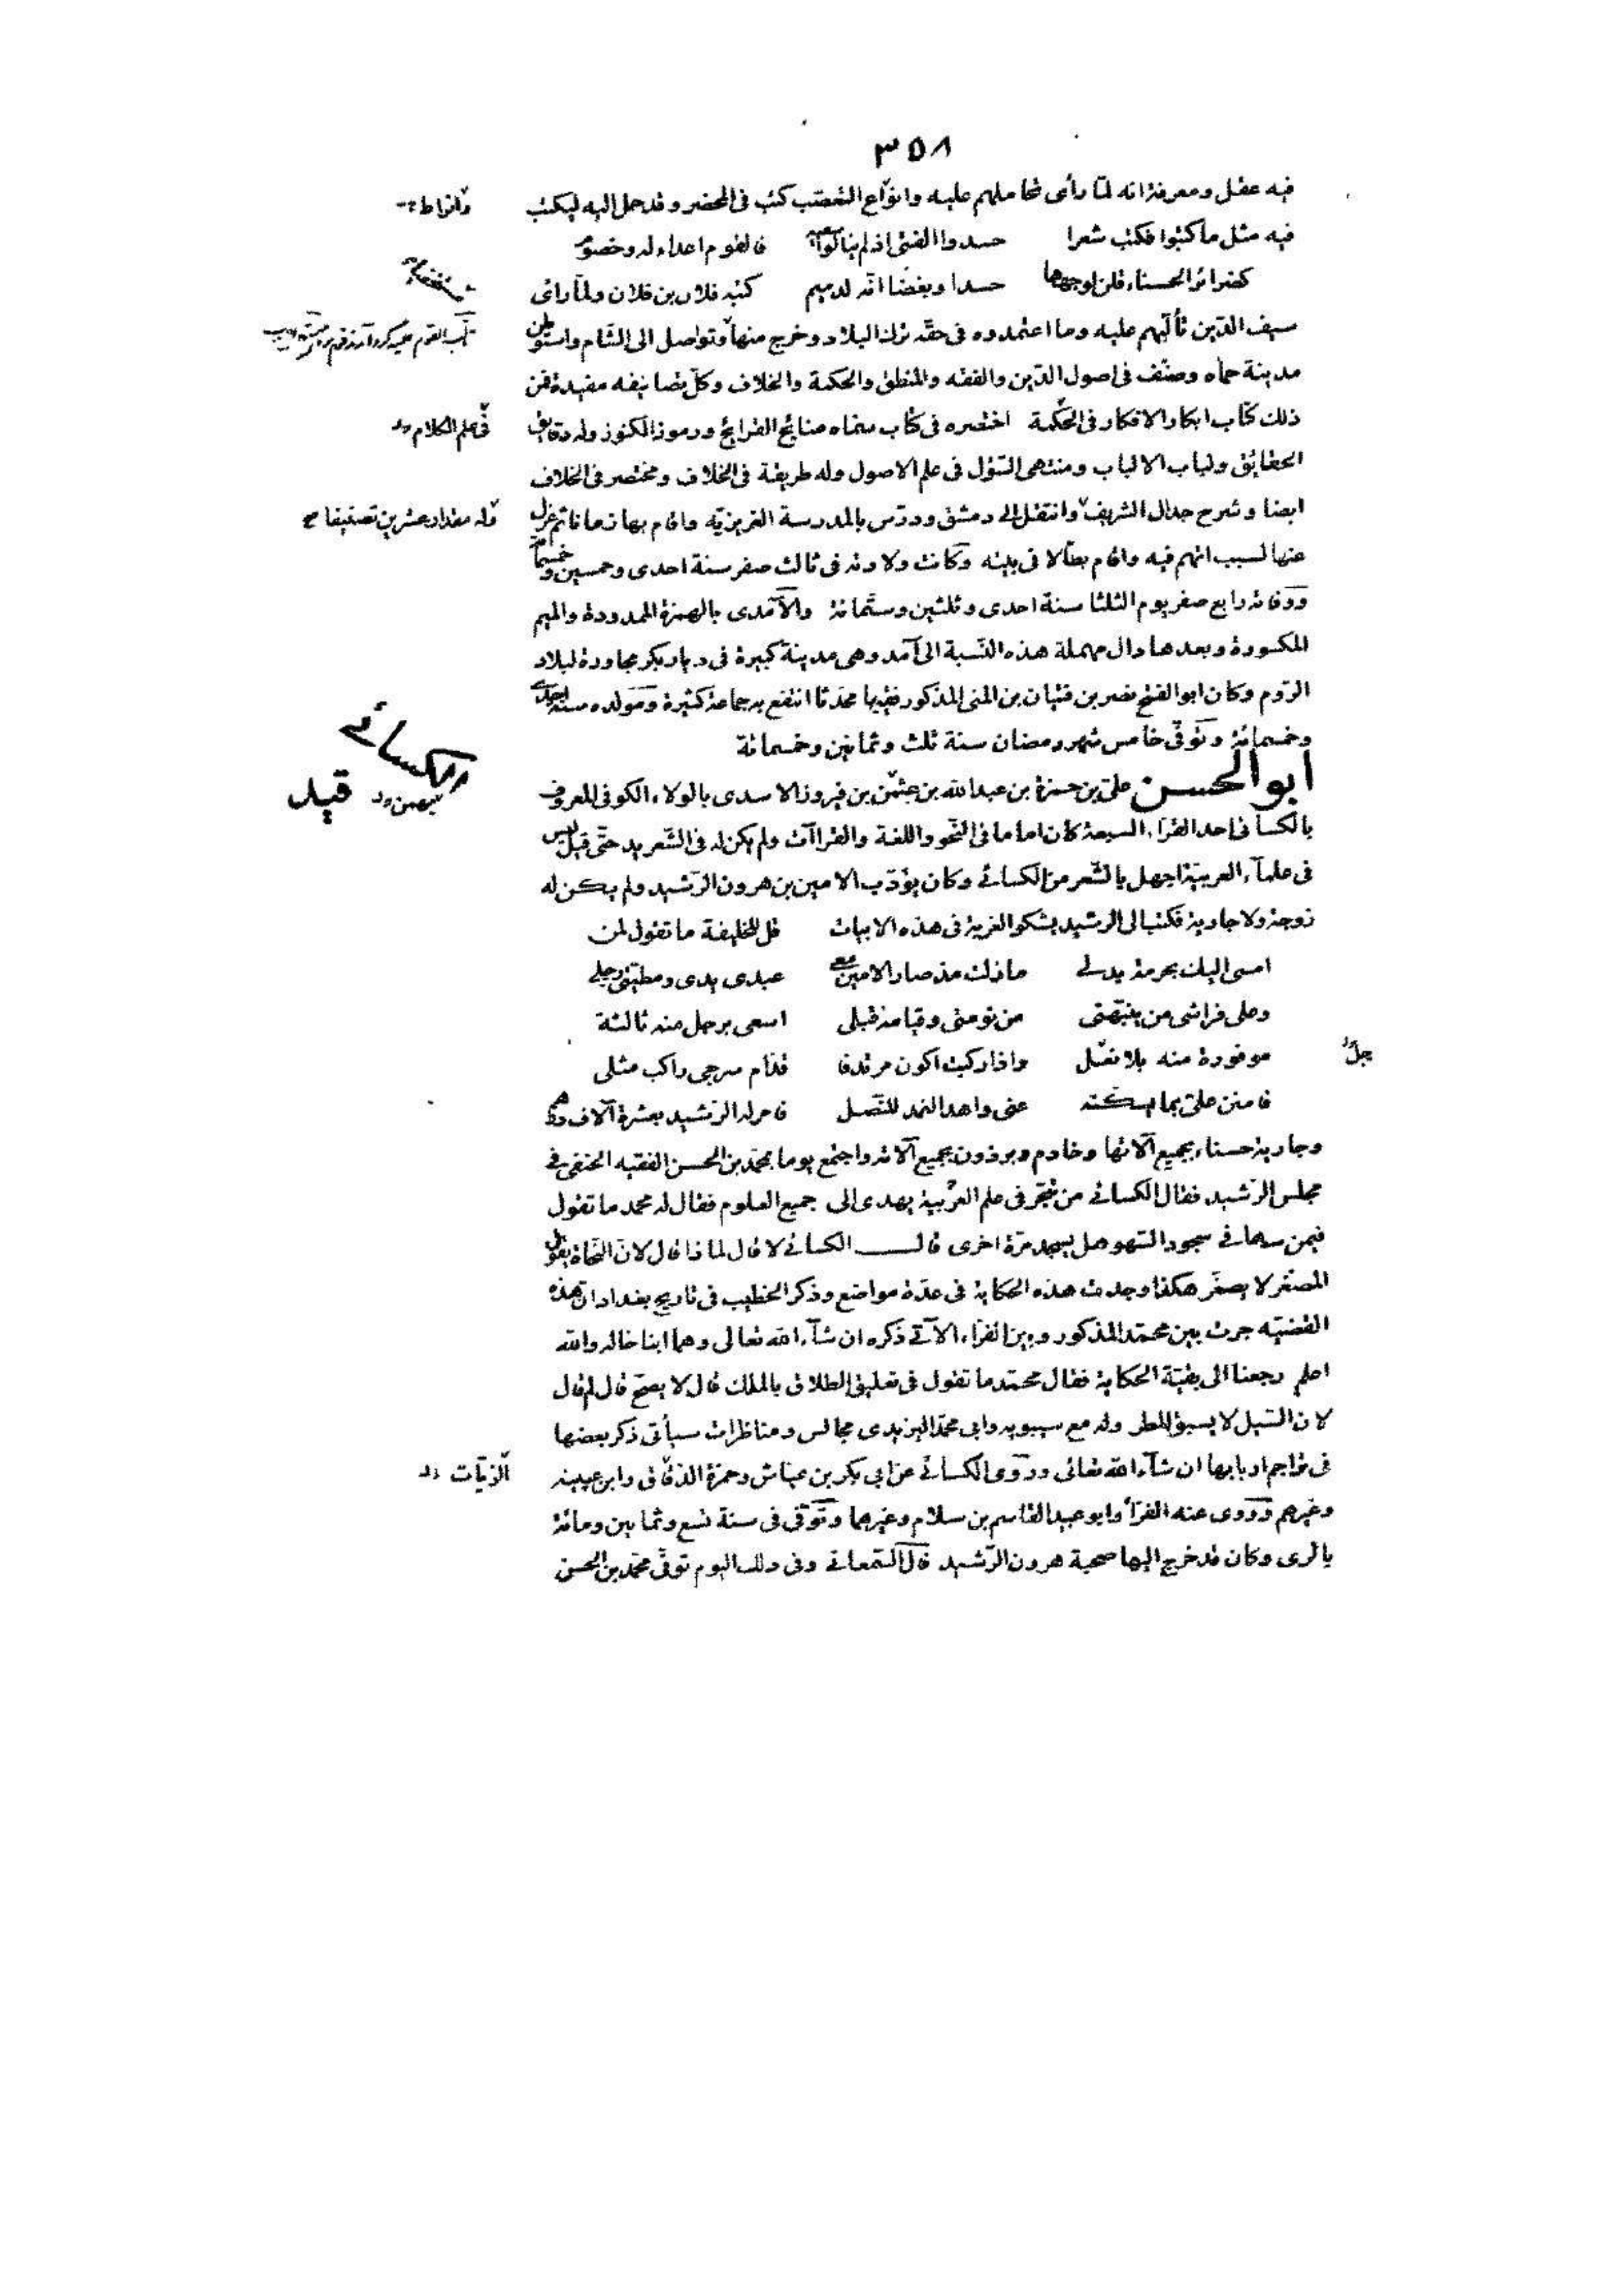 ٣٥٨
فيه عقل ومعرفة انه لمّا رأى تحاملهم عليه وانواع التعصّب كتب فى المحضر وقد حمل اليه ليكتب
وافراط
فيه مثل ما كتبوا فكتب شعرا حسدوا الفتى اذ لم ينالوا سعيه فالقوم اعداء له وخصوم
كضرائر الحسناء قلن لوجهها حسدا وبغضا انه لدميم كتبه فلان بن فلان ولمّا رأى
سيف الدّين تألّبهم عليه وما اعتمدوه فى حقّه ترك البلاد وخرج منها وتواصل الى الشّام واستوطن
مدينة حماه وصنّف فى اصول الدّين والفقه والمنطق والحكمة والخلاف وكلّ تصانيفه مفيدة فمن
ذلك كتاب ابكار الافكار فى الحكمة اختصره فى كتاب سمّاه منائح القرائح ورموز الكنوز وله دقايق
فى علم الكلام
الحقائق ولباب الالباب ومنتهى السّؤل فى علم الاصول وله طريقة فى الخلاف ومختصر فى الخلاف
ايضا وشرح جدال الشريف وانتقل الى دمشق ودرّس بالمدرسة العزيزيّه واقام بها زمانا ثم عزل
وله مقدار عشرين تصنيفا صح
عنها لسبب اتهم فيه واقام بطّالا فى بيته وكانت ولادته فى ثالث صفر سنة احدى وخمسين وخمسمائة
ووفاته رابع صفر يوم الثلثا سنة احدى وثلثين وستّمائة والآمدى بالهمزة الممدودة والميم
المكسورة وبعدها دال مهملة هذه النّسبة الى آمد وهى مدينة كبيرة فى ديار بكر مجاورة لبلاد
الرّوم وكان ابو الفتح نصر بن فتيان بن المنى المذكور فقيها محدّثا انتفع به جماعة كثيرة ومولده سنة احدى
وخمسمائة وتوفّى خامس شهر رمضان سنة ثلث وثمانين وخمسمائة
الكسائى
ابو الحسن علىّ بن حمزة بن عبدالله بن عثمن بن فيروز الاسدى بالولاء الكوفى المعروف
بهمن قيل
بالكسائى احد القرّاء السبعة كان اماما فى النّحو واللغة والقراآت ولم يكن له فى الشّعر يد حتّى قيل ليس
فى علمآء العربيّة اجهل بالشّعر من الكسائى وكان يؤدّب الامين بن هرون الرّشيد ولم يكن له
زوجة ولا جارية فكتب الى الرشيد يشكو العزبة فى هذه الابيات قل للخليفة ما تقول لمن
امسى اليك بحرمة يدلى ما زلت مذ صار الامين معى عبدى يدى ومطيّتى رجلى
وعلى فراشى من ينبّهنى من نومتى وقيامه قبلى اسعى برجل منه ثالثة
موفورة منه بلا نعّل واذا ركبت اكون مرتدفا قدّام سرجى راكب مثلى
رجل
فامنن علىّ بما يسكّنه عنى واهد الغمد للنّصل فامر له الرّشيد بعشرة آلاف درهم
وجارية حسناء بجميع آلاتها وخادم وبرذون بجميع آلاته واجتمع يوما بمحمّد بن الحسن الفقيه الحنفى فى
مجلس الرّشيد فقال الكسائى من تبحّر فى علم العربيّة يهدى الى جميع العلوم فقال له محمد ما تقول
فيمن سها فى سجود السّهو هل يسجد مرّة اخرى قال الكسائى لا قال لماذا قال لانّ النّحاة يقول
المصغّر لا يصغّر هكذا وجدت هذه الحكاية فى عدّة مواضع وذكر الخطيب فى تاريخ بغداد ان هذه
القضيّه جرت بين محمّد المذكور وبين الفرّاء الآتى ذكره ان شآء الله تعالى وهما ابنا خاله والله
اعلم رجعنا الى بقيّة الحكاية فقال محمّد ما تقول فى تعليق الطلاق بالملك قال لا يصحّ قال لم قال
لان السّيل لا يسبق المطر وله مع سيبويه وابى محمّد اليزيدى مجالس ومناظرات سيأتى ذكر بعضها
فى تراجم اربابها ان شآء الله تعالى وروى الكسائى عن ابى بكر بن عيّاش وحمزة الدقّاق وابن عيينه
الزيّات
وغيرهم وروى عنه الفرّا وابو عبيد القاسم بن سلام وغيرهما وتوّفى فى سنة تسع وثمانين ومائة
بالرى وكان قد خرج اليها صحبة هرون الرّشيد قال السّمعانى وفى ذلك اليوم توفّى محمّد بن الحسن